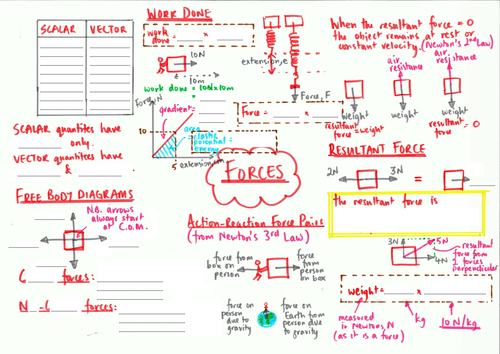 SCALAR VECTOR
SCALAR quantities have
only.
VECTOR quantities have
&
FREE BODY DIAGRAMS
N.B. arrows
always start
at C.O.M.
C forces:
N -C forces:
WORK DONE
work
done = x
10N
10m
work done = 10N x 10m
Force, N
gradient=
area
=elastic
potential=
energy
10
5 extension
extension, e
Force, F
Force = x
FORCES
Action-Reaction Force Pairs
(from Newton's 3rd Law)
force from
box on
person
force from
person
on box
force on
person due
to gravity
force on
Earth from
person due
to gravity
When the resultant force = 0
the object remains at rest or
constant velocity. (Newton's Law)
air
resistance
air
resistance
weight
weight
weight
resultant
force = weight
resultant
force = 0
RESULTANT FORCE
2N 3N =
the resultant force is
3N
5N
4N
resultant
force from
2 forces
perpendicular
weight = x
measured
in Newtons, N
(as it is a force)
kg
10 N/kg